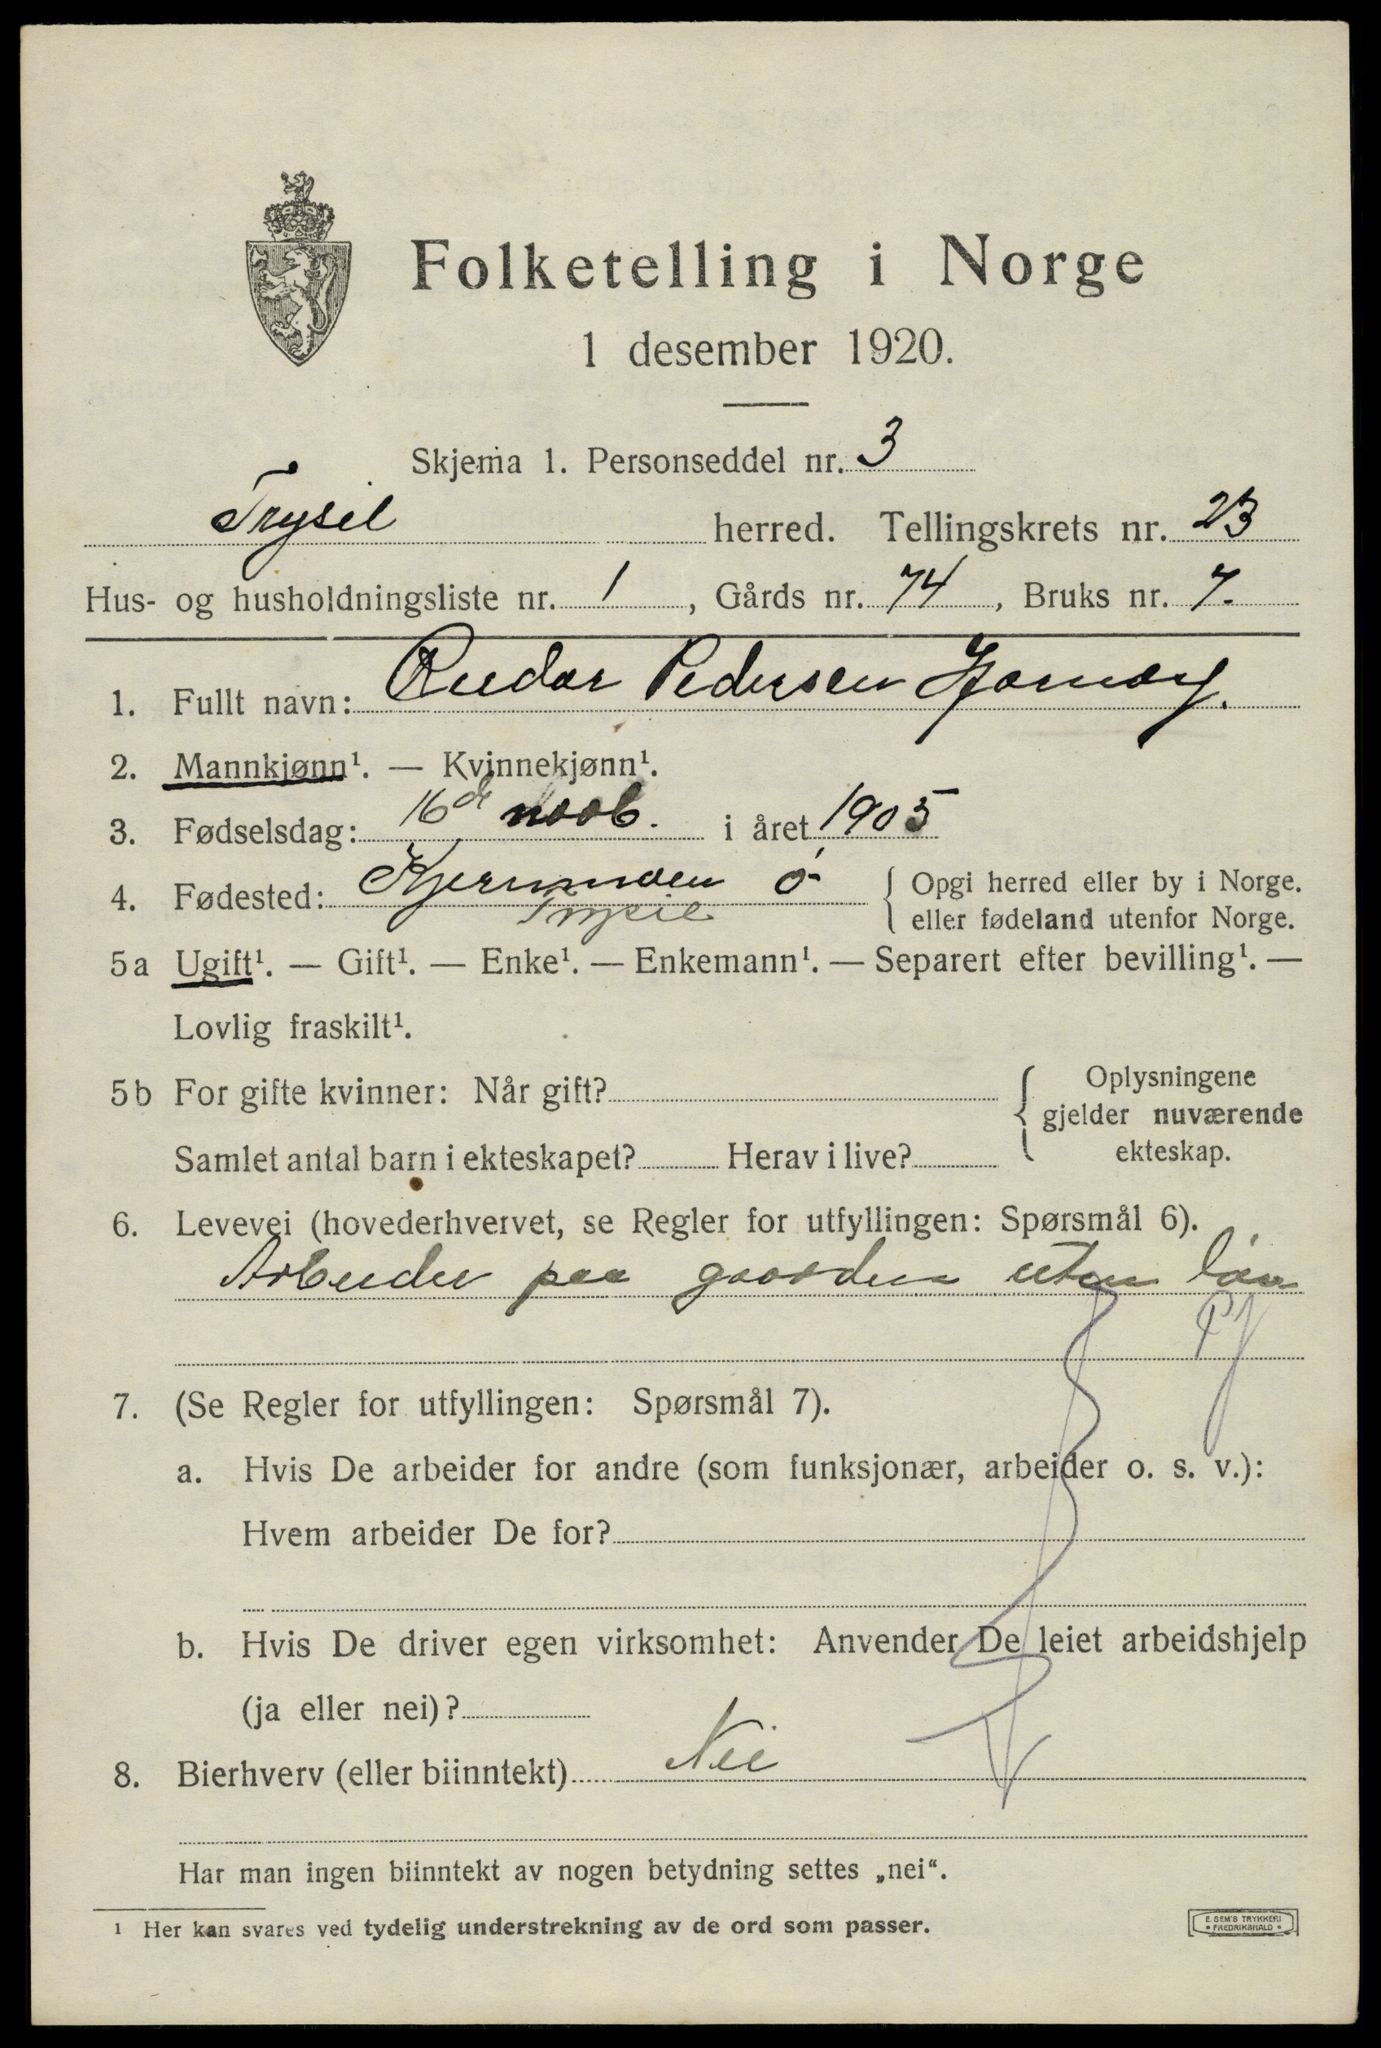 Folketelling i Norge
1 desember 1920.
Skjema 1. Personseddel nr. 3
Trysil herred. Tellingskrets nr. 23
Hus- og husholdningsliste nr. 1, Gårds nr. 74, Bruks nr. 7.
1. Fullt navn: Pedersen
2. Mannkjønn¹. — Kvinnekjønn¹.
3. Fødselsdag: 16de novb. i året 1905
4. Fødested: ö
Opgi herred eller by i Norge.
eller fødeland utenfor Norge.
Trysil
5a Ugift¹. — Gift¹. — Enke¹. — Enkemann¹. — Separert efter bevilling¹. —
Lovlig fraskilt¹.
5b For gifte kvinner: Når gift?
Samlet antal barn i ekteskapet? Herav i live?
Oplysningene
gjelder nuværende
ekteskap.
6. Levevei (hovederhvervet, se Regler for utfyllingen: Spørsmål 6).
Arbeider paa gaarden uten løn
7. (Se Regler for utfyllingen: Spørsmål 7).
a. Hvis De arbeider for andre (som funksjonær, arbeider o. s. v.):
Hvem arbeider De for?
b. Hvis De driver egen virksomhet: Anvender De leiet arbeidshjelp
(ja eller nei)?
8. Bierhverv (eller biinntekt) Nei
Har man ingen biinntekt av nogen betydning settes „nei“.
¹ Her kan svares ved tydelig understrekning av de ord som passer.
E. SEM'S TRYKKERI
• FREDRIKSHALD •